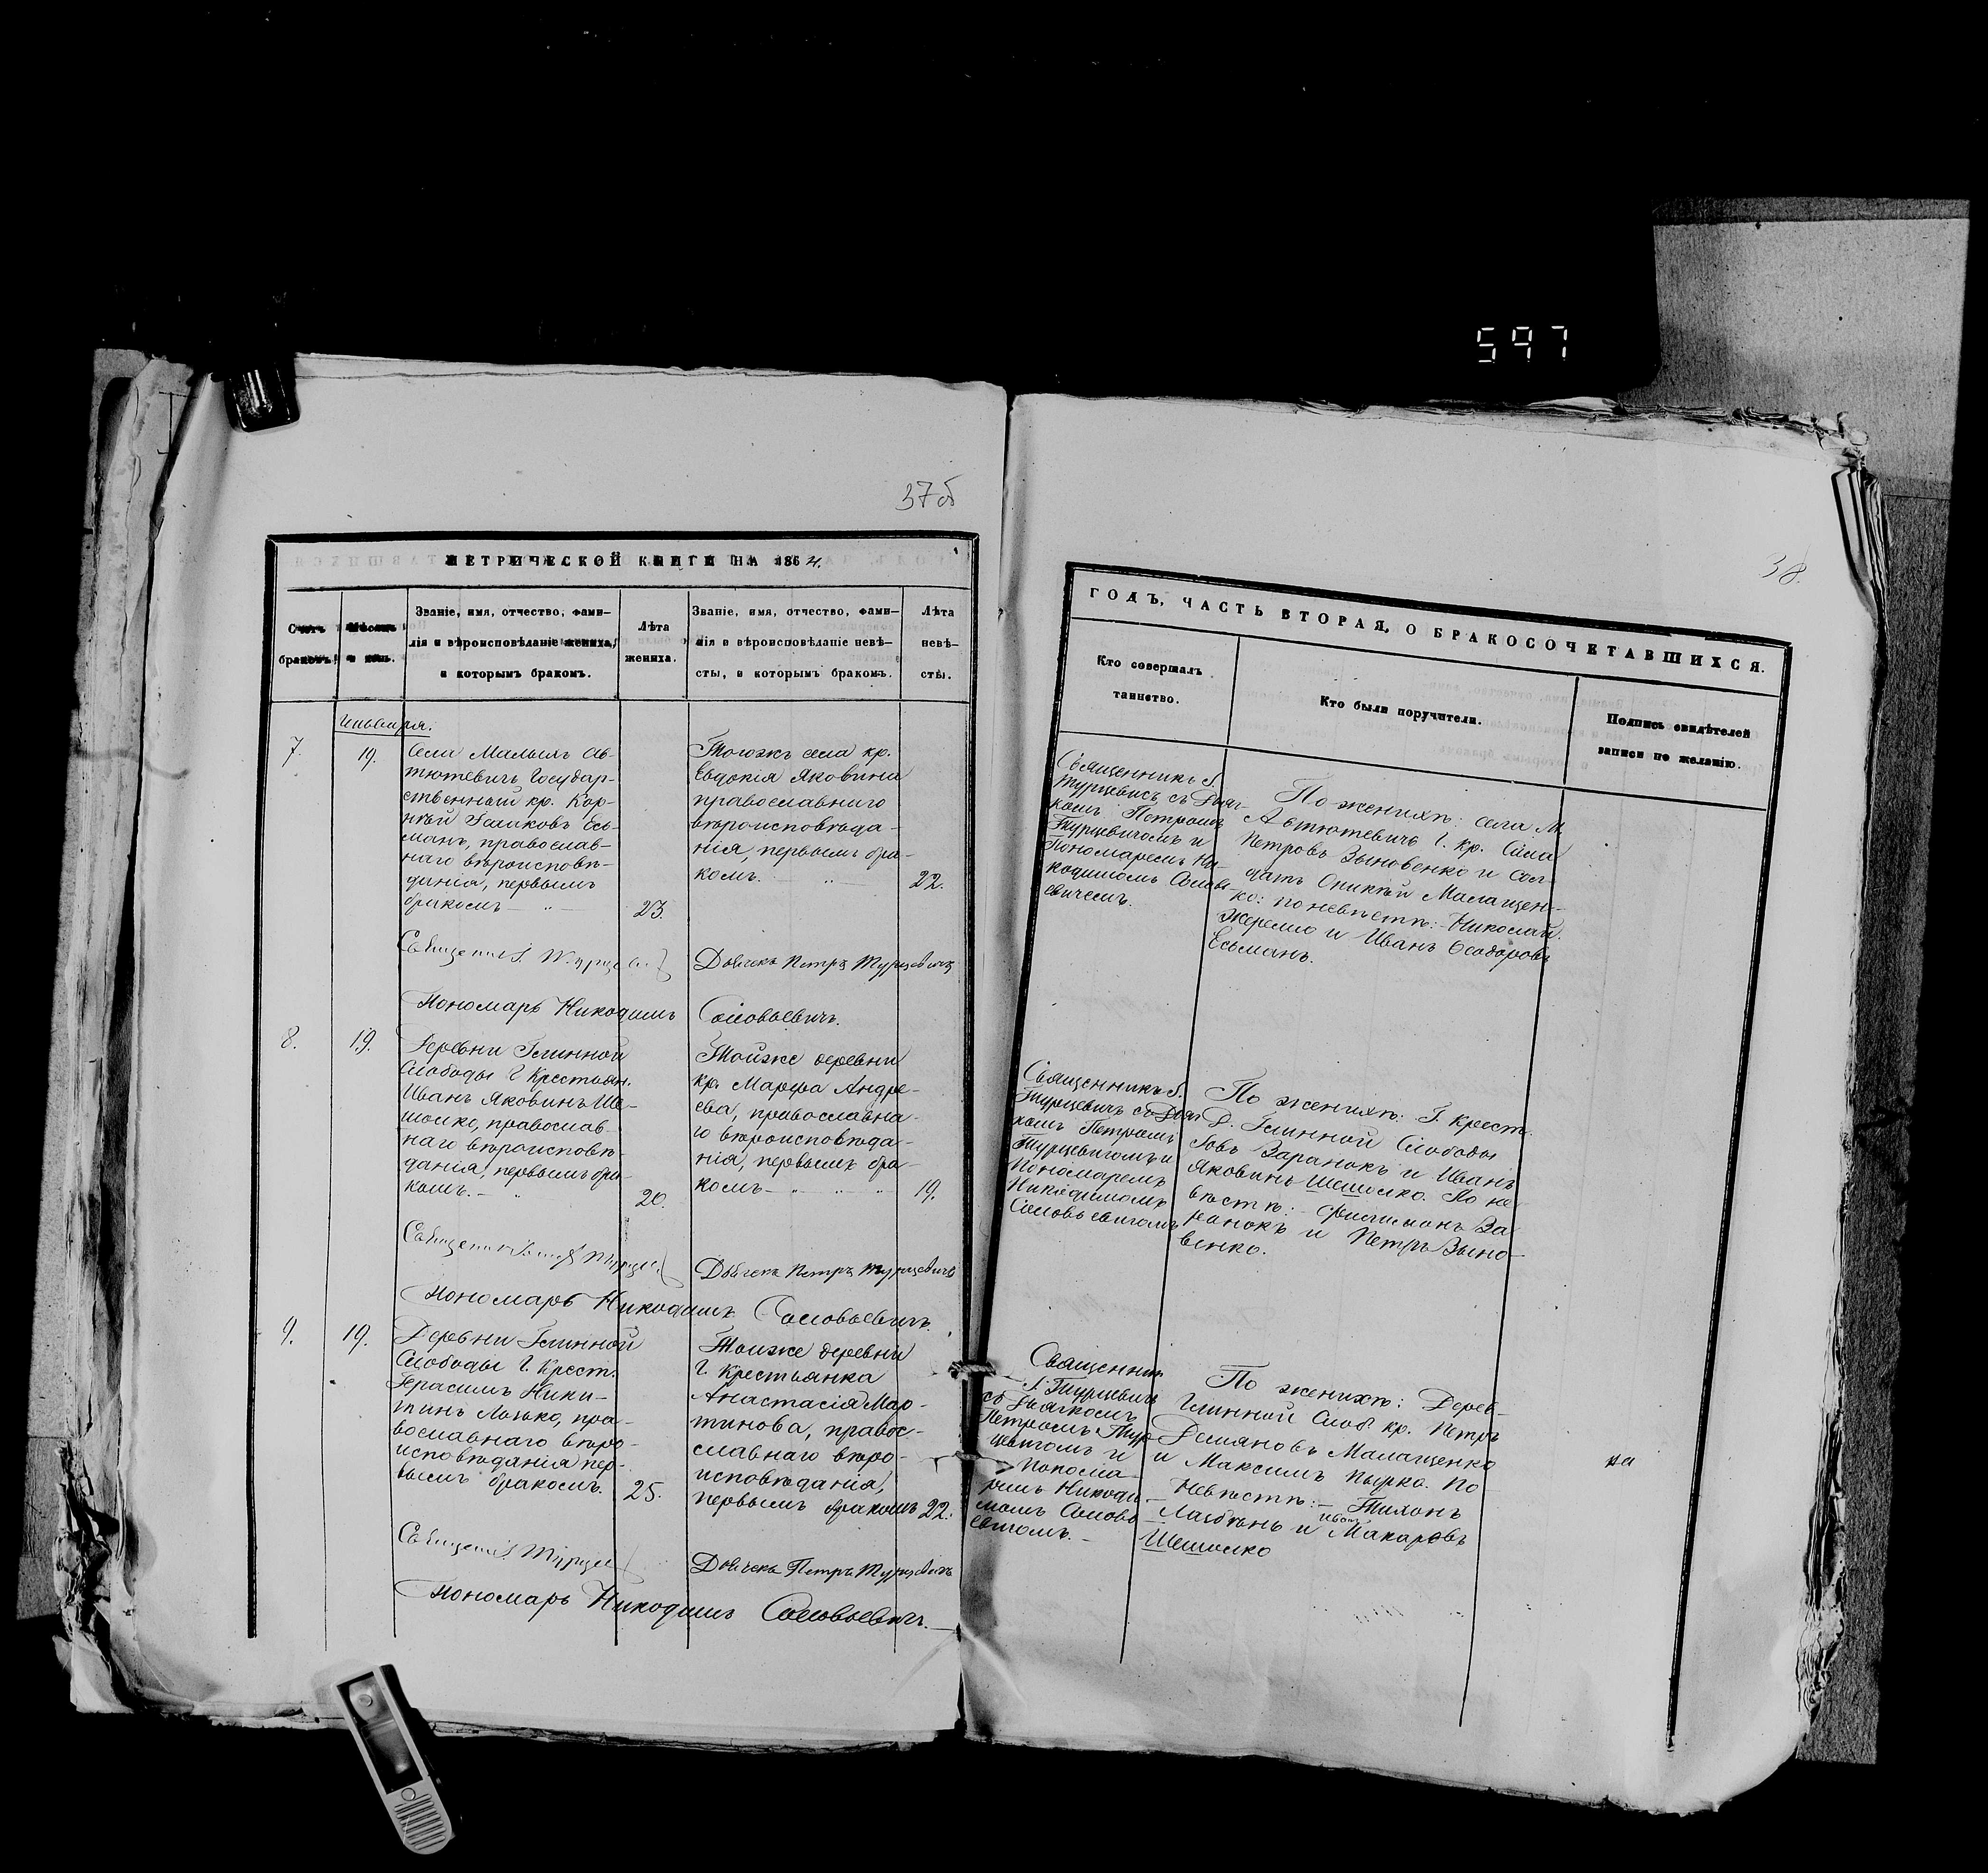 597
37об
МЕТРИЧЕСКОЙ КНИГИ НА 1864.
Счетъ
браковъ.
Мѣсяцъ
и день.
Званіе, имя, отчество, фами-
лія и вѣроисповѣданіе жениха,
и которымъ бракомъ.
Лѣта
жениха.
Званіе, имя, отчество, фами-
лія и вѣроисповѣданіе невѣ-
сты, и которымъ бракомъ.
Лѣта
невѣ-
сты.
7.
19.
Села Малыхъ Ав-
тютевичъ Государ-
ственный кр. Кор-
нѣй Есь-
манъ, православ-
наго вѣроисповѣ-
данія, первымъ
бракомъ — „ —
23.
Тогожъ села кр.
Евдокія Яковлина
православнаго
вѣроисповѣда-
нія, первымъ бра-
комъ. — „ —
22.
Дьячекъ Петръ Турцевичъ
Пономарь Никодимъ Соловьевичъ.
8.
19.
Деревни Глинной
Слободы Г. Крестьян.
Иванъ Яковинъ Ше-
шолко, православ-
наго вѣроисповѣ-
данія, первымъ бра-
комъ. — „
20.
Тойже деревни
кр. Марфа Андре-
ева, православна-
го вѣроисповѣда-
нія, первымъ бра-
комъ — „ — „ — „
19.
Дьячекъ Петръ Турцевичъ
Пономарь Никодимъ Соловьевичъ.
9.
19.
Деревни Глинной
Слободы Г. Крест.
Герасимъ Ники-
тинъ Лозько, пра-
вославнаго вѣро-
исповѣданія пер-
вымъ бракомъ.
25.
Тойже деревни
Г. Крестьянка
Анастасія Мар-
тинова, правос-
славнаго вѣро-
исповѣданія,
первымъ бракомъ
22.
Дьячекъ Петръ Турцевичъ
Пономарь Никодимъ Соловьевичъ.
38.
ГОДЪ, ЧАСТЬ ВТОРАЯ, О БРАКОСОЧЕТАВШИХСЯ.
Кто совершалъ
таинство.
Кто были поручители.
Подпись свидѣтелей
записи по желанію.
Священникъ І.
Турцевичъ съ Дьяч-
комъ Петромъ
Турцевичомъ и
Пономаремъ Ни-
кодимомъ Соловь-
евичемъ.
По женихѣ: села М.
Автютевичъ Г. кр. Сила
Петровъ Зыновенко и Сол-
датъ Оникѣй Малащен-
ко: по невѣстѣ: Николай
Жеремо и Иванъ Ѳеодоровъ
Есьманъ.
Священникъ І.
Турцевичъ съ Дьяч-
комъ Петромъ
Турцевичомъ и
Пономаремъ
Никодимомъ
Соловьевичомъ
По женихѣ: Г. крест.
Д. Глинной Слободы
Іовъ Заранокъ и Иванъ
Яковинъ Шешолко. По не-
вѣстѣ: Филимонъ За-
ранокъ и Петръ Зыно-
венко.
Священник
І. Турцевичъ
съ Дьячкомъ
Петромъ Тур-
цевичомъ и
Понома-
ремъ Никоди-
момъ Соловь-
евичомъ. —
По женихѣ: Дерев-
Глинной Слоб. кр. Петръ
Демяновъ Малащенко
и Максимъ Пырко. По
Невѣстѣ: — Тихонъ
и Иван Макаровъ
Шешолко